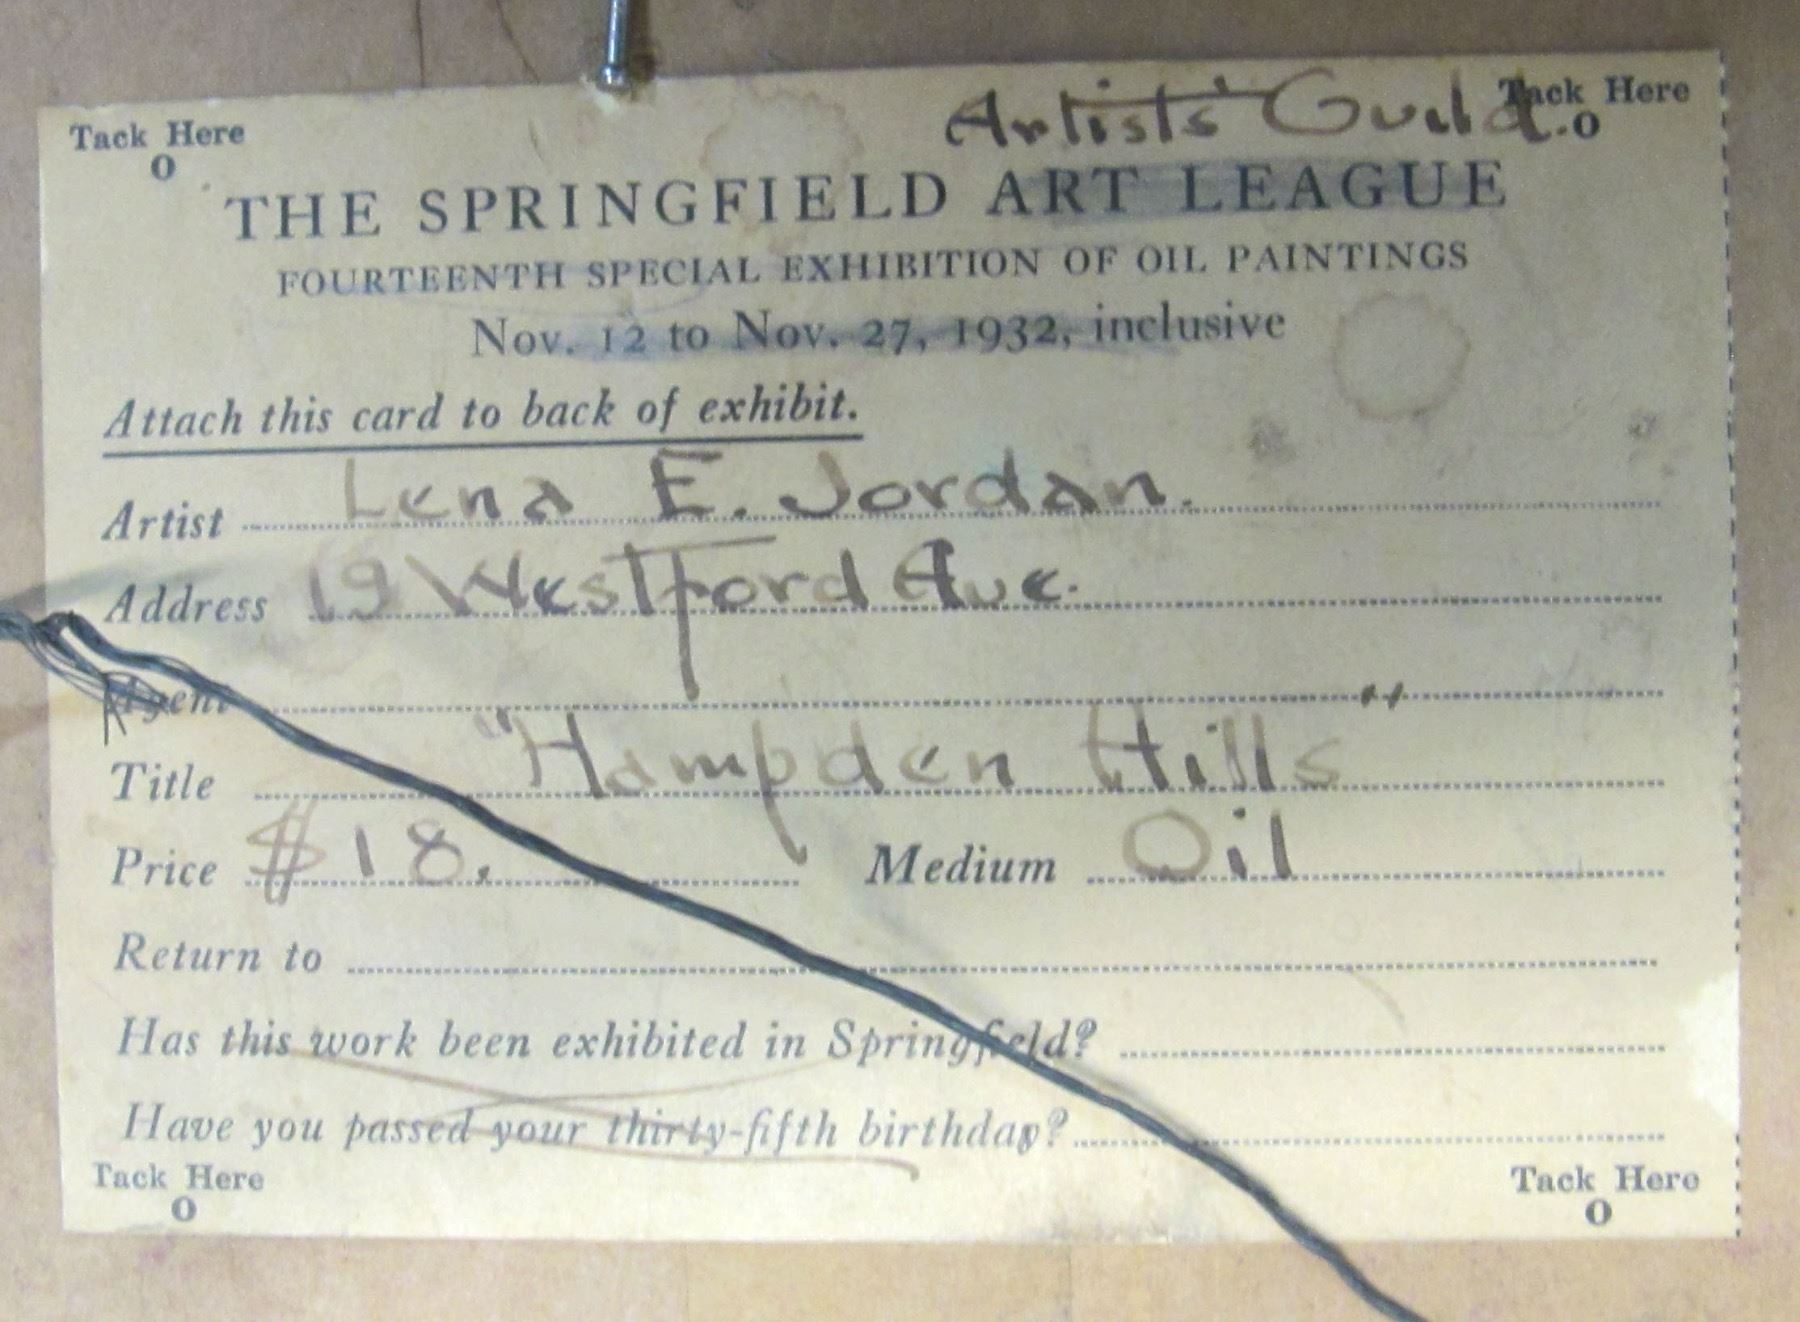 Artists' Guild.
Tack Here Tack Here
O O
THE SPRINGFIELD ART LEAGUE
FOURTEENTH SPECIAL EXHIBITION OF OIL PAINTINGS
Nov. 12 to Nov. 27, 1932, inclusive
Attach this card to back of exhibit.
Artist Lena E. Jordan.
Address 19 Westford Ave.
Agent
Title "Hampden Hills"
Price $18. Medium Oil
Return to
Has this work been exhibited in Springfield?
Have you passed your thirty-fifth birthday?
Tack Here Tack Here
O O